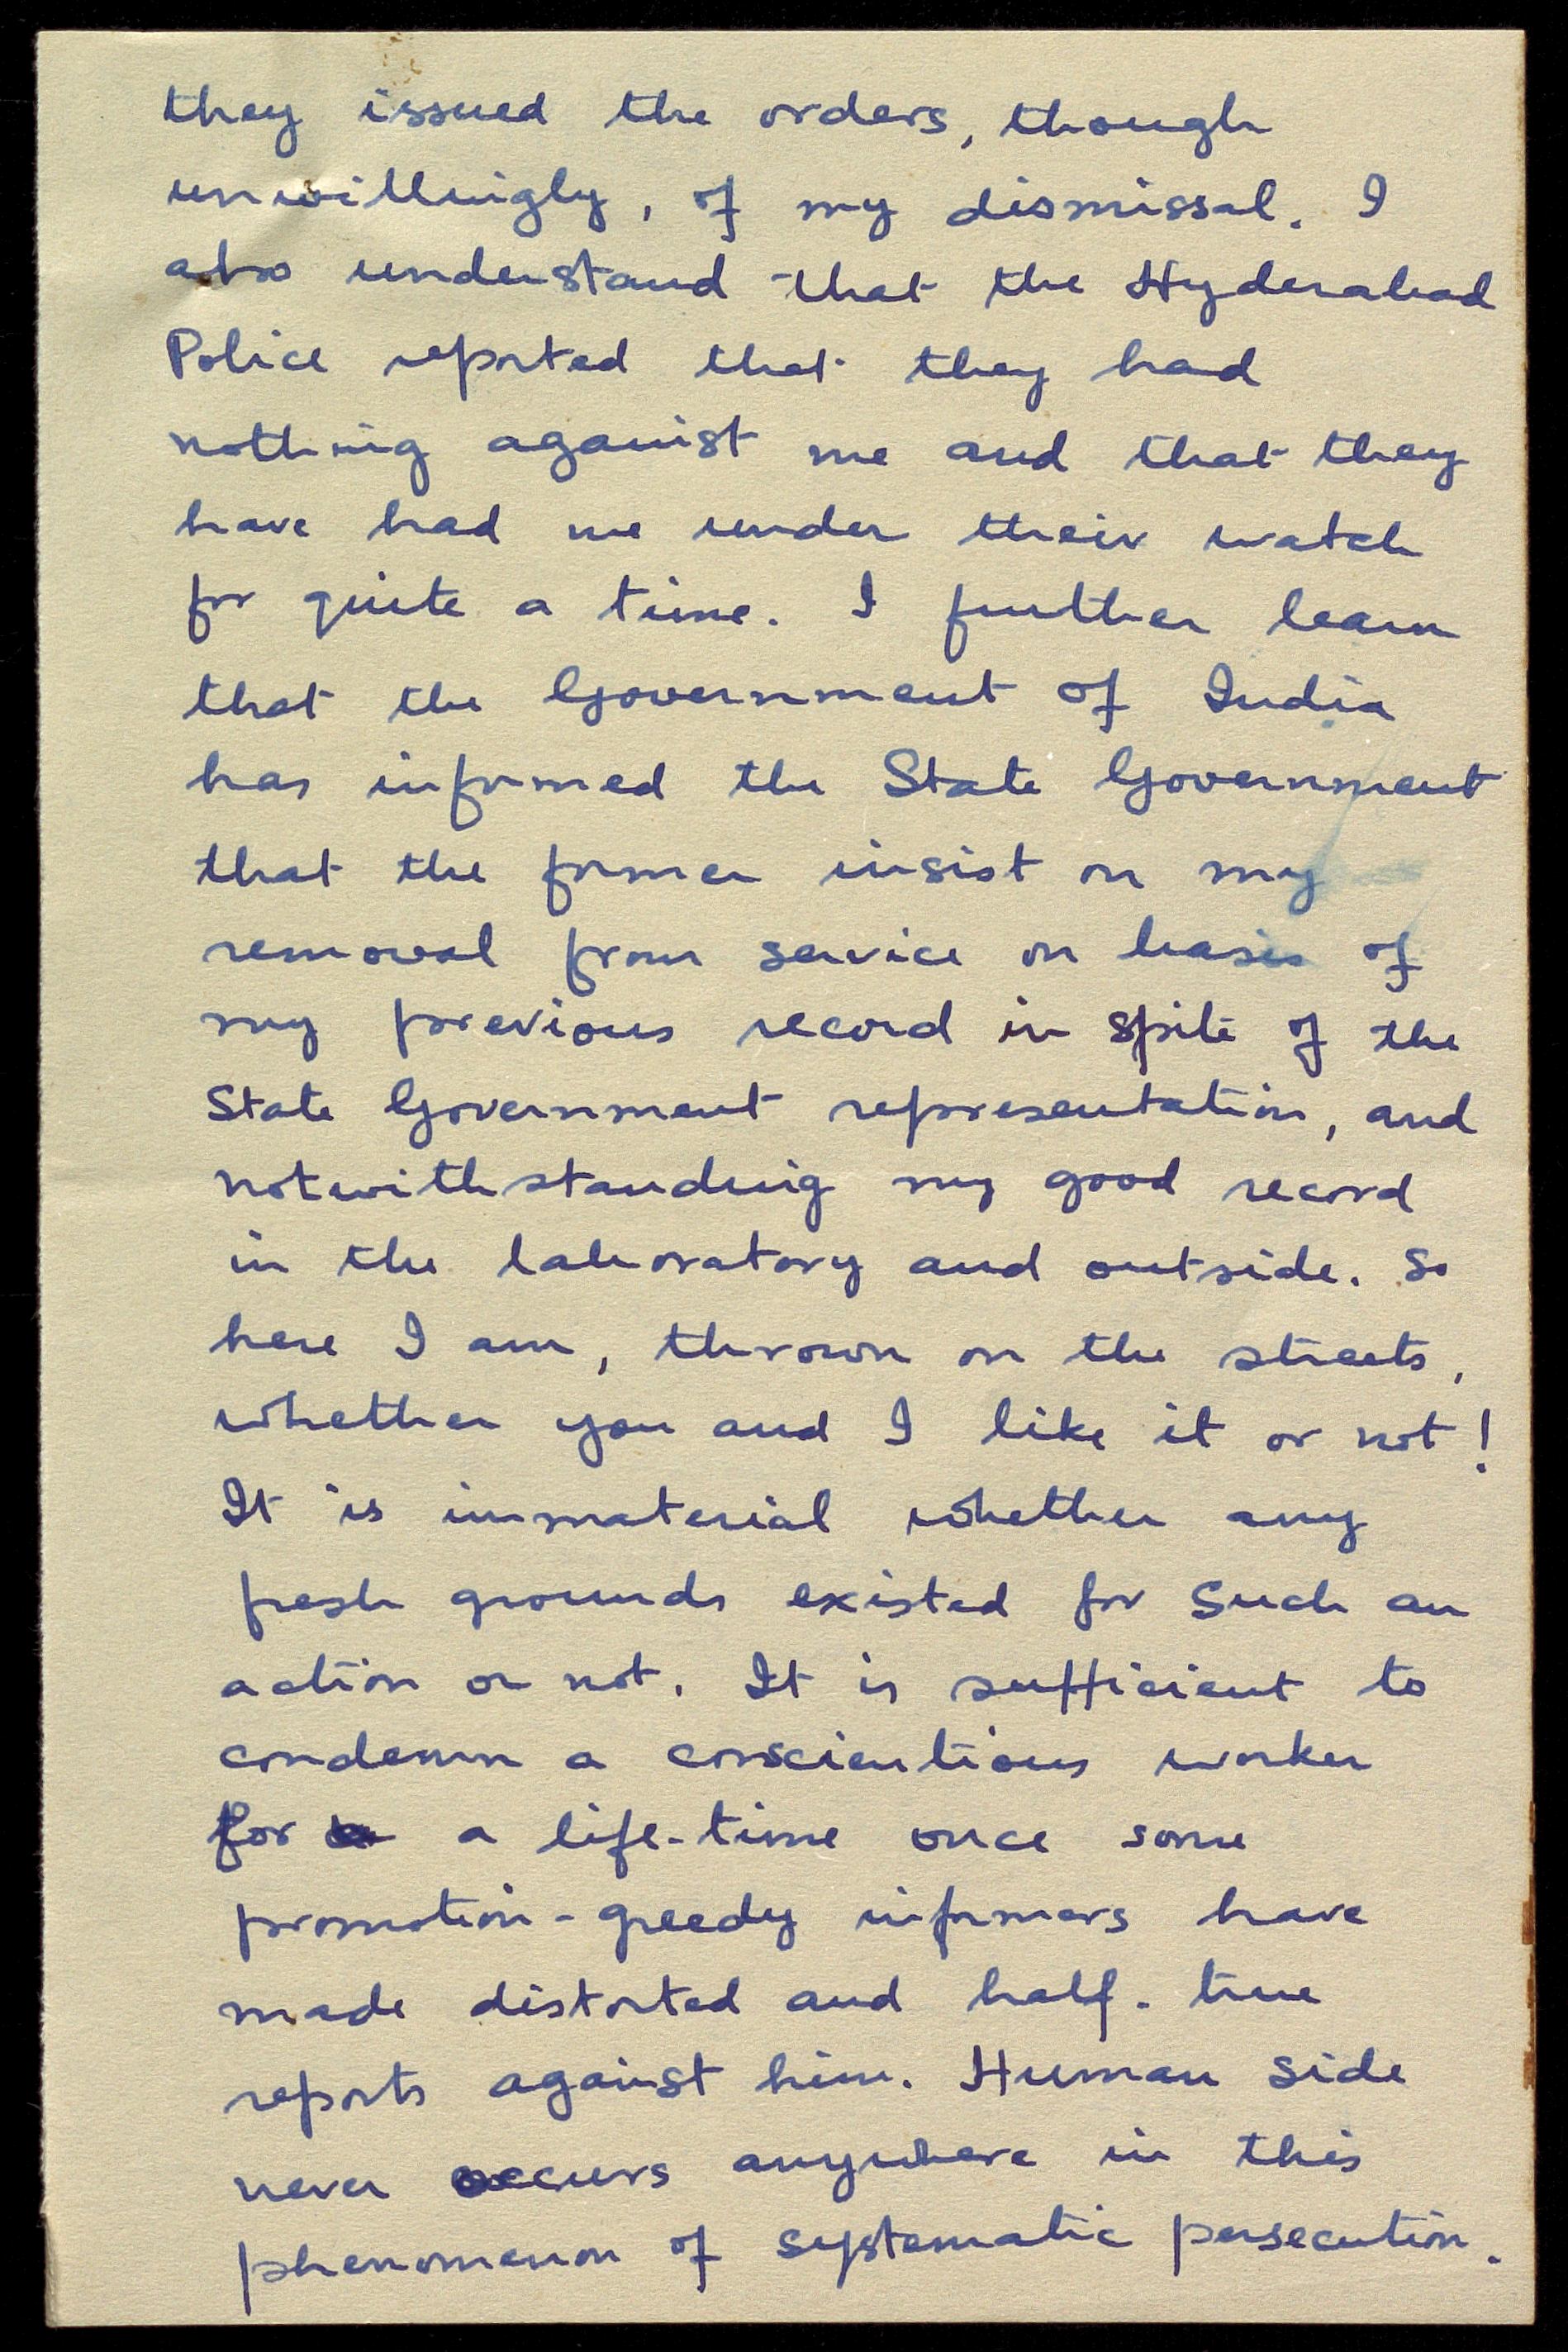 they issued the orders, though
unwillingly, of my dismissal. I
also understand that the Hyderabad
Police reported that they had
nothing against me and that they
have had me under their watch
for quite a time. I further learn
that the Government of India
has informed the State Government
that the former insist on my
removal from service on basis of
my previous record in spite of the
State Government representation, and
notwithstanding my good record
in the laboratory and outside. So
here I am, thrown on the streets,
whether you and I like it or not!
It is immaterial whether any
fresh grounds existed for such an
action or not. It is sufficient to
condemn a conscientious worker
for a life-time once some
promotion-greedy informers have
made distorted and half-true
reports against him. Human side
never occurs anywhere in this
phenomenon of systematic persecution.